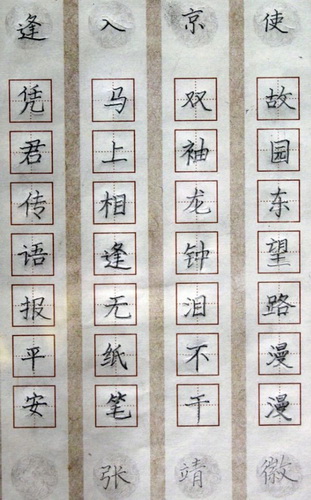 逢入京使
故园东望路漫漫
双袖龙钟泪不干
马上相逢无纸笔
凭君传语报平安
张靖徽